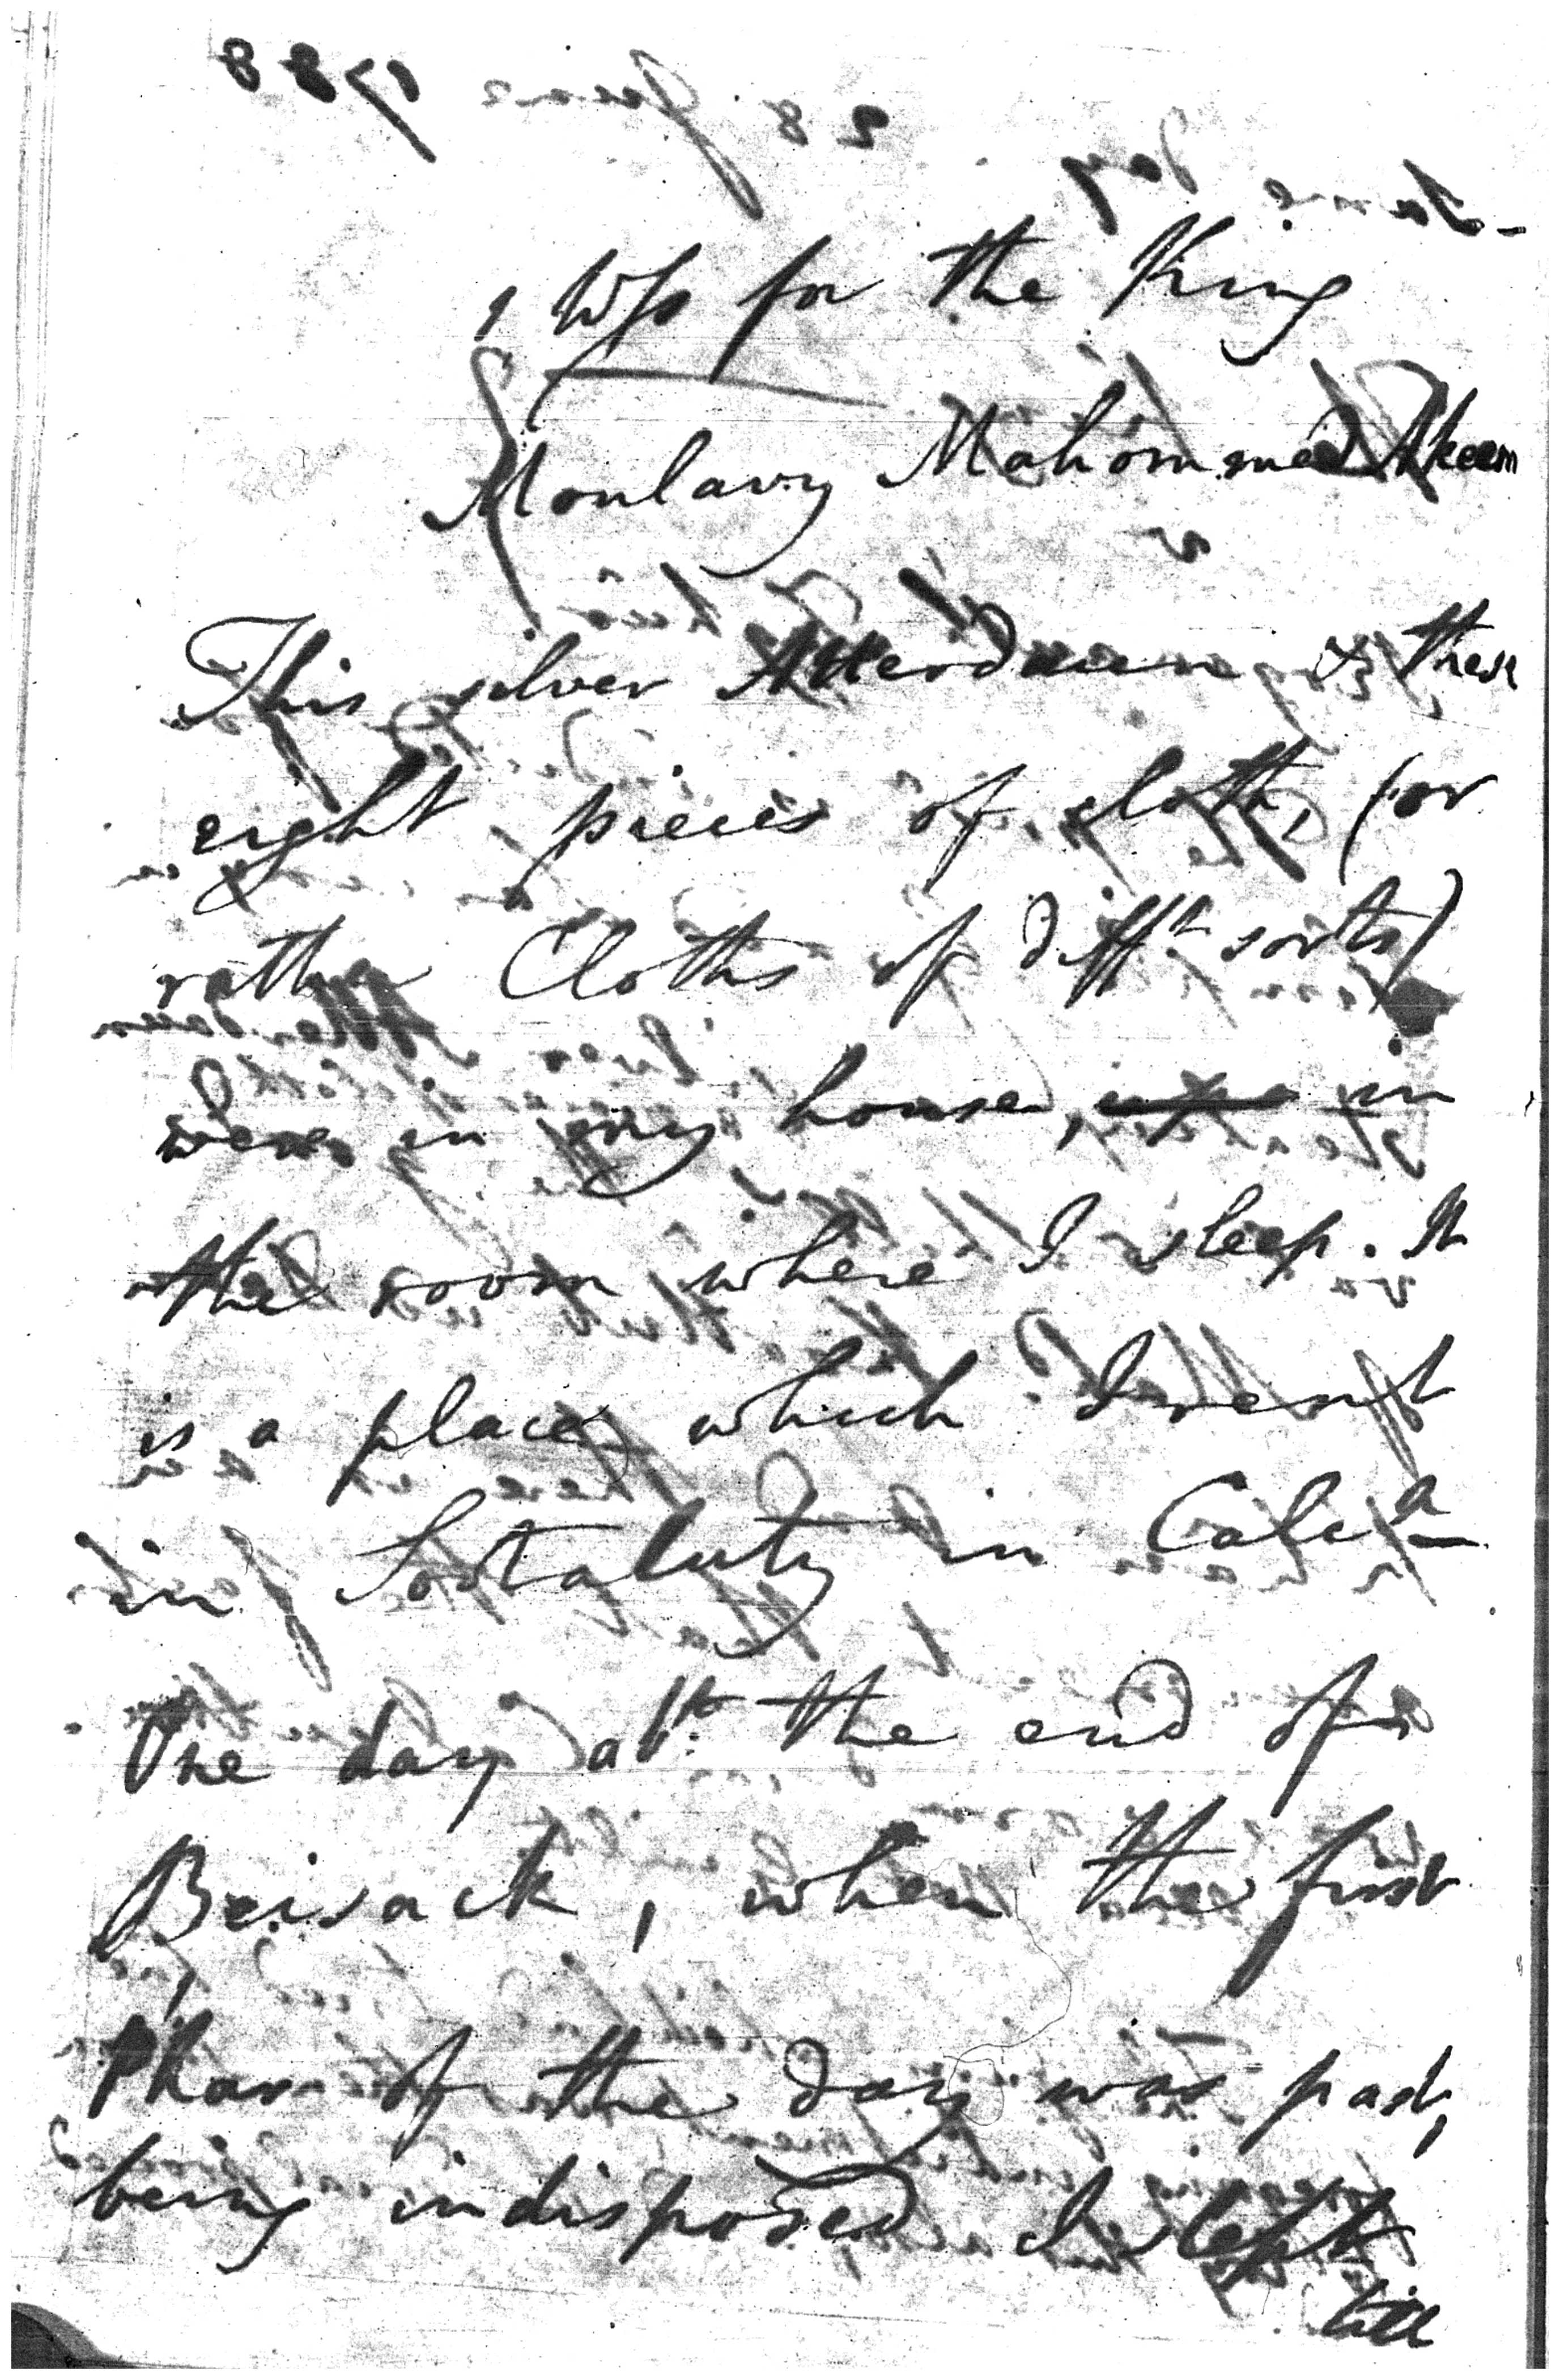 1 Wss for the King
Moulavy Mahommed Akeem
This silver Atterdaun & these
eight pieces of cloth, (or
rather Cloths of diff.t sorts)
were in my house, in
the room where I sleep. It
is a place which I rent
in Sootaluty in Calc.a
One day ab.t the end of
Beisack, when the first
Phar of the day was past,
being indisposed I slept
till